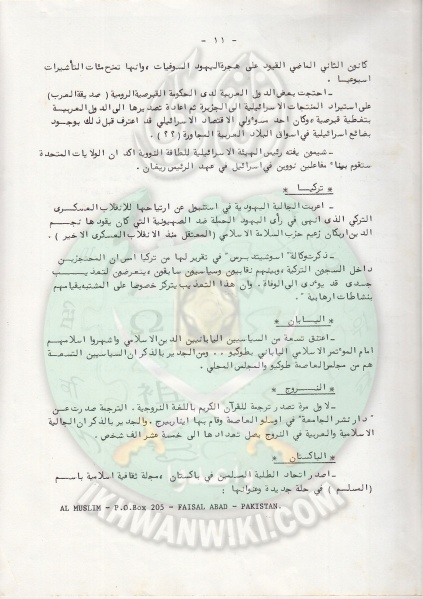 - ١١ -
كانون الثاني الماضي القيود على هجرة اليهود السوفيات ، وانها تمنح مئات التأشيرات
اسبوعيا .
- احتجت بعض الدول العربية لدى الحكومة القبرصية الرومية ( صديقة العرب)
على استيراد المنتجات الاسرائيلية الى الجزيرة ثم اعادة تصديرها الى الدول العربيـة
بتغطية قبرصية ، وكان احد مسؤولي الاقتصاد الاسرائيلي قد اعترف قبل ذلك بوجـود
بضائع اسرائيلية في اسواق البلاد العربية المجاورة (؟؟) .
- شيمون يفته رئيس الهيئة الاسرائيلية للطاقة النووية اكد ان الولايات المتحدة
ستقوم ببناء مفاعلين نوويين في اسرائيل في عهد الرئيس ريغان .
* تركيـا *
- اعربت الجالية اليهودية في استنبول عن ارتياحها للانقلاب العسكـرى
التركي الذى انهى في رأى اليهود الحملة ضد الصهيونية التي كان يقودها نجـم
الدين اربكان زعيم حزب السلامة الاسلامي (المعتقل منذ الانقلاب العسكرى الاخير ) .
- ذكرت وكالة" اسوشيتد برس" في تقرير لها من تركيا اسـ ان المحتجزيـن
داخل السجون التركية ، وبينهم نقابيون وسياسيون سابقون ، يتعرضون لتعذيـــب
جسدى قد يؤدى الى الوفاة . وان هذا التعذيب يتركز خصوصا على المشتبه بقيامهم
بنشاطات ارهابية " .
* اليـابـان *
- اعتنق تسعة من السياسيين اليابانيين الدين الاسلامي واشهروا اسلامهـم
امام المؤتمر الاسلامي الياباني بطوكيو ... ومن الجدير بالذكر ان السياسيين التسعـة
هم من مجلس العاصمة طوكيو والمجلس المحلي .
* النــروج *
- لاول مرة تصدر ترجمة للقرآن الكريم باللغة النروجية . الترجمة صدرت عـن
" دار نشر الجامعة" في اوسلو العاصمة وقام بها اينار بيرج . والجدير بالذكر ان الجالية
الاسلامية والعربية في النروج يصل تعدادها الى خمسة عشر الف شخص .
* الباكستان *
- اصدر اتحاد الطلبة المسلمين في باكستان ، مجلة ثقافية اسلامية باسـم
(المسلـم ) في حلة جديدة وعنوانها :
AL MUSLIM - P.O.Box 205 - FAISAL ABAD - PAKISTAN.
IKHWANWIKI.COM